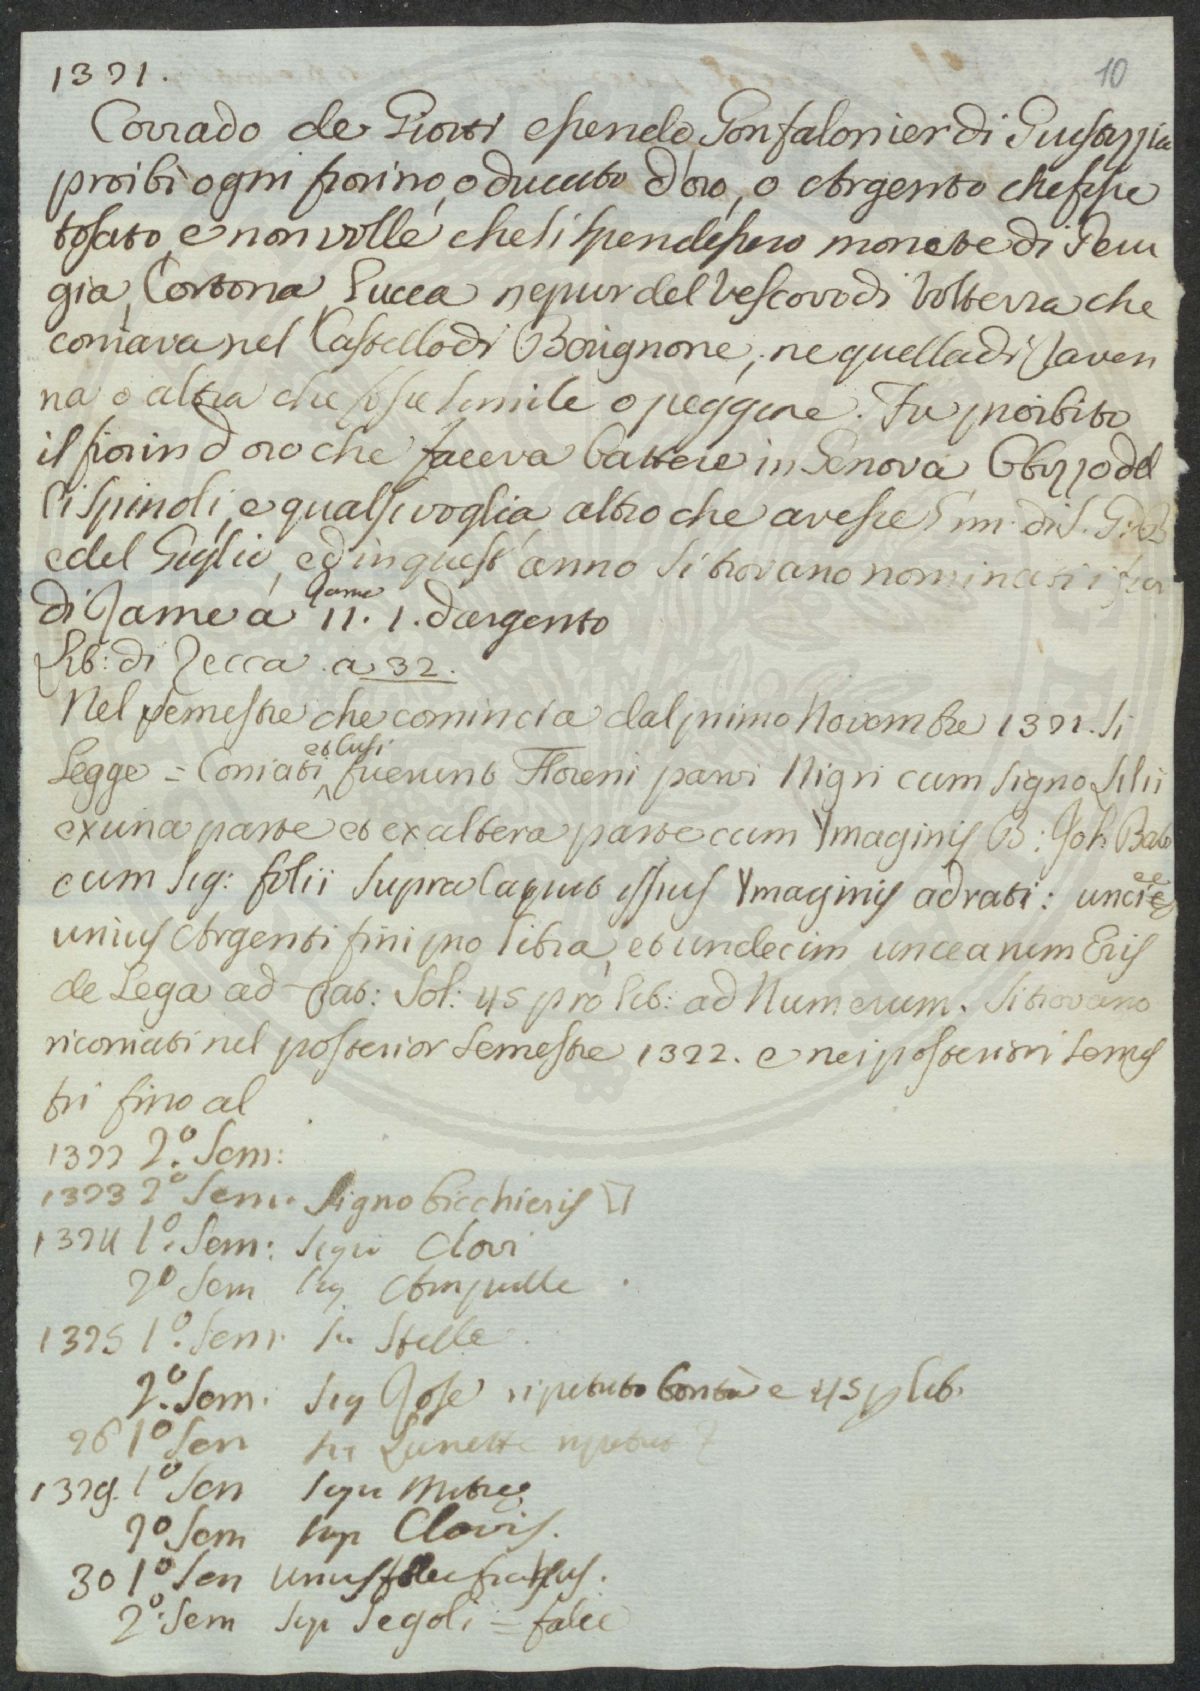 10
1321.
Corrado de Giotti essendo Gonfalonier di Giustizzia
proibì ogni fiorino, o ducato d'oro, o Argento che fosse
tosato, e non volle che si spendessero monete di Peru
gia, Cortona Lucca nepur del Vescovo di Volterra che
coniava nel Castello di Berignone, ne quella di Raven
na o altra che fosse simile o peggiore. Fu proibito
il fiorin d'oro che faceva battere in Genova Obizzo del
li Spinoli, e qualsivoglia altro che avesse l'im. di S. G:
e del Giglio, ed in quest'anno si trovano nominati i fior
di Rame a Rame 11. 1. d'argento
Lib: di Zecca a 32.
Nel semestre che comincia dal primo Novembre 1321. si
Legge = Coniati et cusi fuerunt Floreni parvi Nigri cum signo Lilii
ex una parte et ex altera parte cum Ymaginis B: Joh. Bat
cum sig: folii supra caput ipsius Ymaginis ad rati: uncie
unius Argenti fini pro libra, et undecim uncearum Eris
de Lega ad rat: Sol: 45 pro lib: ad Numerum. Si trovano
riconiati nel posterior semestre 1322. e nei posteriori semes
tri fino al
1322 2.º Sem:
1323 2º Sem. signo bicchieris
1324 1.º Sem: signo Clavi
2º Sem sig Ampulle
1325 1.º Sem. si. Stelle
2.º Sem. sig Rose ripetuto bontà e 45 p lib.
26 1º Sem si Lunette
1329. 1º Sem sign Mitre
2º Sem sig Clavis.
30 1º Sem unius
2º. Sem sig Segoli = falce